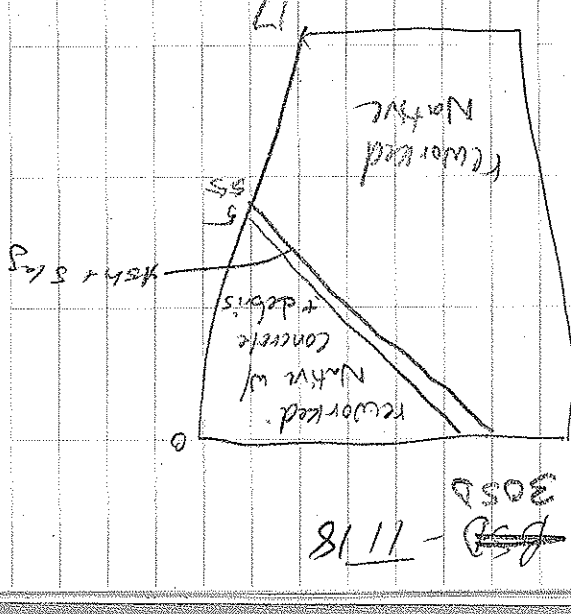 RSD - 11/18
305D
0
reworked
Native w/
Concrete
+ debris
Ash + Slag
5
5.5
reworked
Native
17